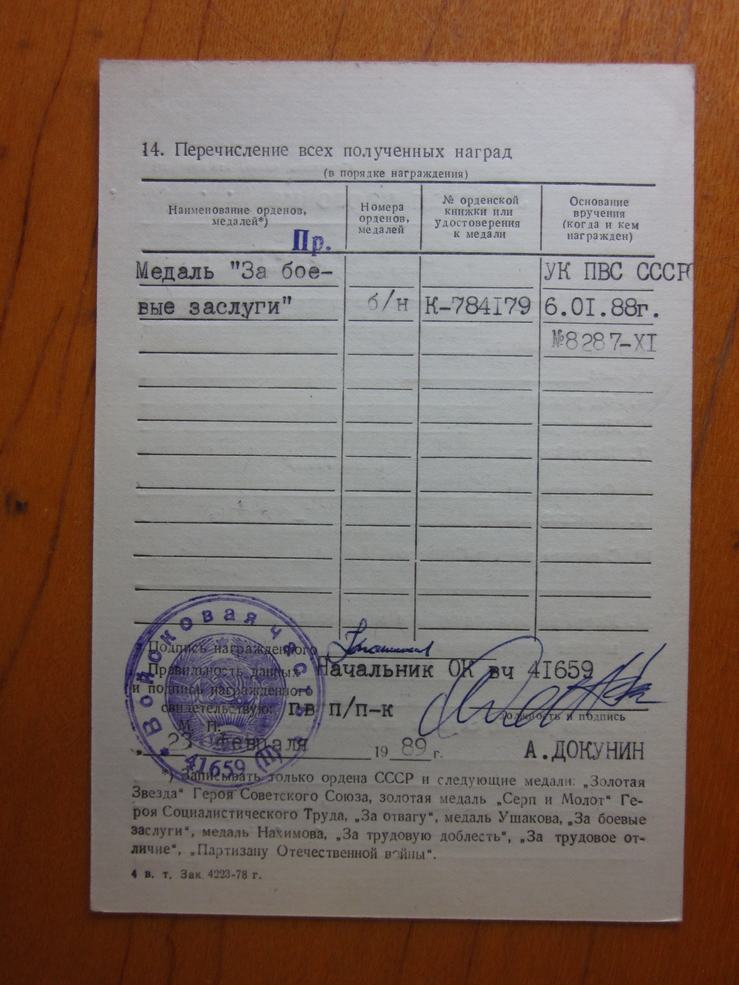 14. Перечисление всех полученных наград
(в порядке награждения)
Наименование орденов,
медалей*)
Номера
орденов,
медалей
№ орденской
книжки или
удостоверения
к медали
Основание
вручения
(когда и кем
награжден)
Пр.
Медаль "За бое-
вые заслуги"
б/н
К-784179
УК ПВС СССР
6.01.88г.
№8287-XI
Войсковая часть
41659
Подпись награжденного
Правильность данных
и подпись награжденного
свидетельствую:
Начальник ОК вч 41659
пв п/п-к
должность и подпись
М. П.
23 февраля 1989 г.
А.ДОКУНИН
*) Записывать только ордена СССР и следующие медали: „Золотая
Звезда" Героя Советского Союза, золотая медаль „Серп и Молот" Ге-
роя Социалистического Труда, „За отвагу", медаль Ушакова, „За боевые
заслуги", медаль Нахимова, „За трудовую доблесть", „За трудовое от-
личие", „Партизану Отечественной войны".
4 в. т. Зак. 4223-78 г.